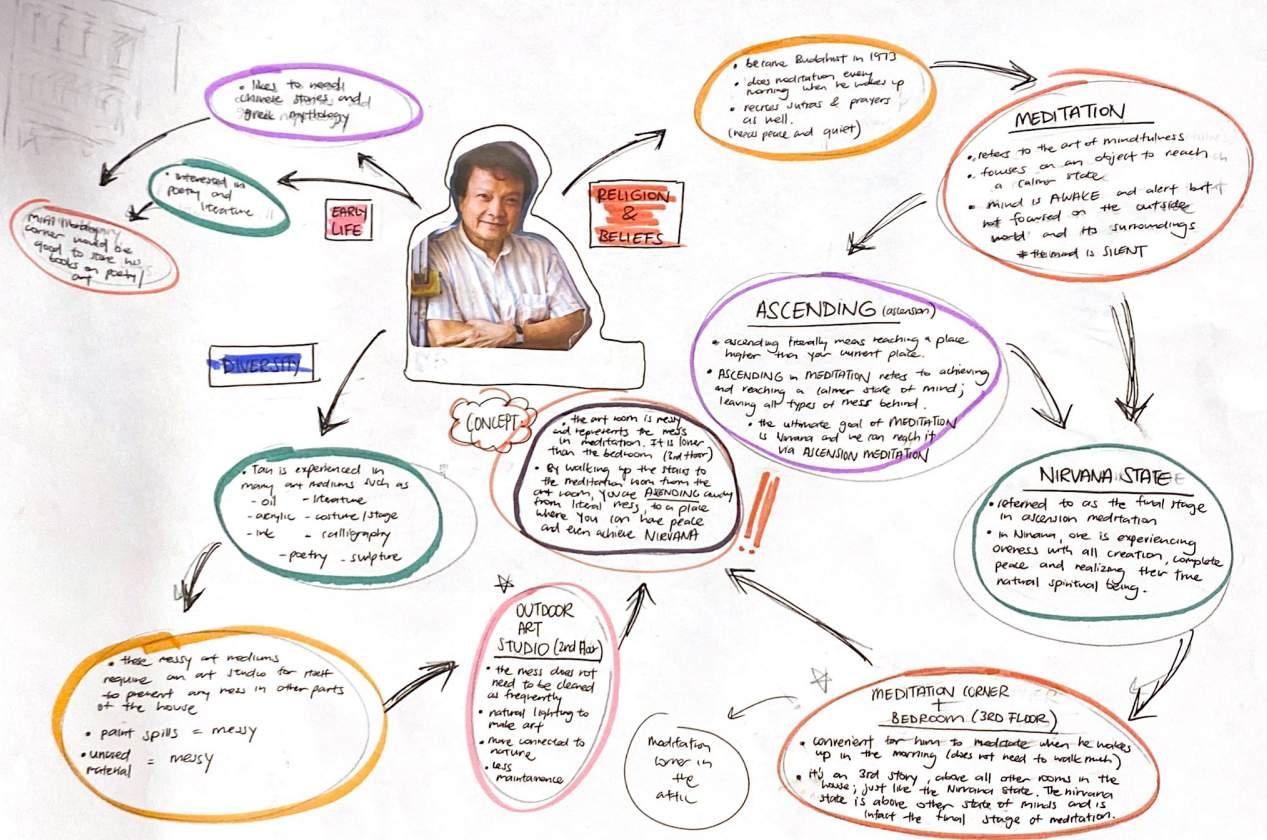 • likes to read
chinese stories and
greek mythology
• interested in
poetry and
literature
mini
corner would be
good to store his
books on poetry/
art
EARLY
LIFE
RELIGION
&
BELIEFS
• became Buddhist in 1973
• does meditation every
morning when he wakes up
• recites sutras & prayers
as well.
(needs peace and quiet)
MEDITATION
• refers to the art of mindfulness
• focuses on an object to reach
a calmer state
• mind is AWAKE and alert but
not focused on the outside
world and its surroundings
* the mind is SILENT
ASCENDING (ascension)
• ascending literally means reaching a place
higher than your current place.
• ASCENDING in MEDITATION refers to achieving
and reaching a calmer state of mind;
leaving all types of mess behind.
• the ultimate goal of MEDITATION
is Nirvana and we can reach it
via ASCENSION MEDITATION
NIRVANA STATE
• referred to as the final stage
in ascension meditation
• in Nirvana, one is experiencing
oneness with all creation, complete
peace and realizing their true
natural spiritual being.
MEDITATION CORNER
+
BEDROOM (3RD FLOOR)
• convenient for him to meditate when he wakes
up in the morning (does not need to walk much)
• it's on 3rd story, above all other rooms in the
house; just like the Nirvana state. The nirvana
state is above other state of minds and is
infact the final stage of meditation.
meditation
corner in
the
attic
CONCEPT
• the art room is messy
and represents the mess
in meditation. It is lower
than the bedroom (3rd floor)
• By walking up the stairs to
the meditation room from the
art room, you are ASENDING away
from literal mess, to a place
where you can have peace
and even achieve NIRVANA
!!
DIVERSITY
• Tan is experienced in
many art mediums such as
- oil - literature
- acrylic - costure/stage
- ink - calligraphy
- poetry - sculpture
• these messy art mediums
require an art studio for itself
to prevent any mess in other parts
of the house
• paint spills = messy
• unused
material = messy
OUTDOOR
ART
STUDIO (2nd floor)
• the mess does not
need to be cleaned
as frequently
• natural lighting to
make art
• more connected to
nature
• less
maintainence